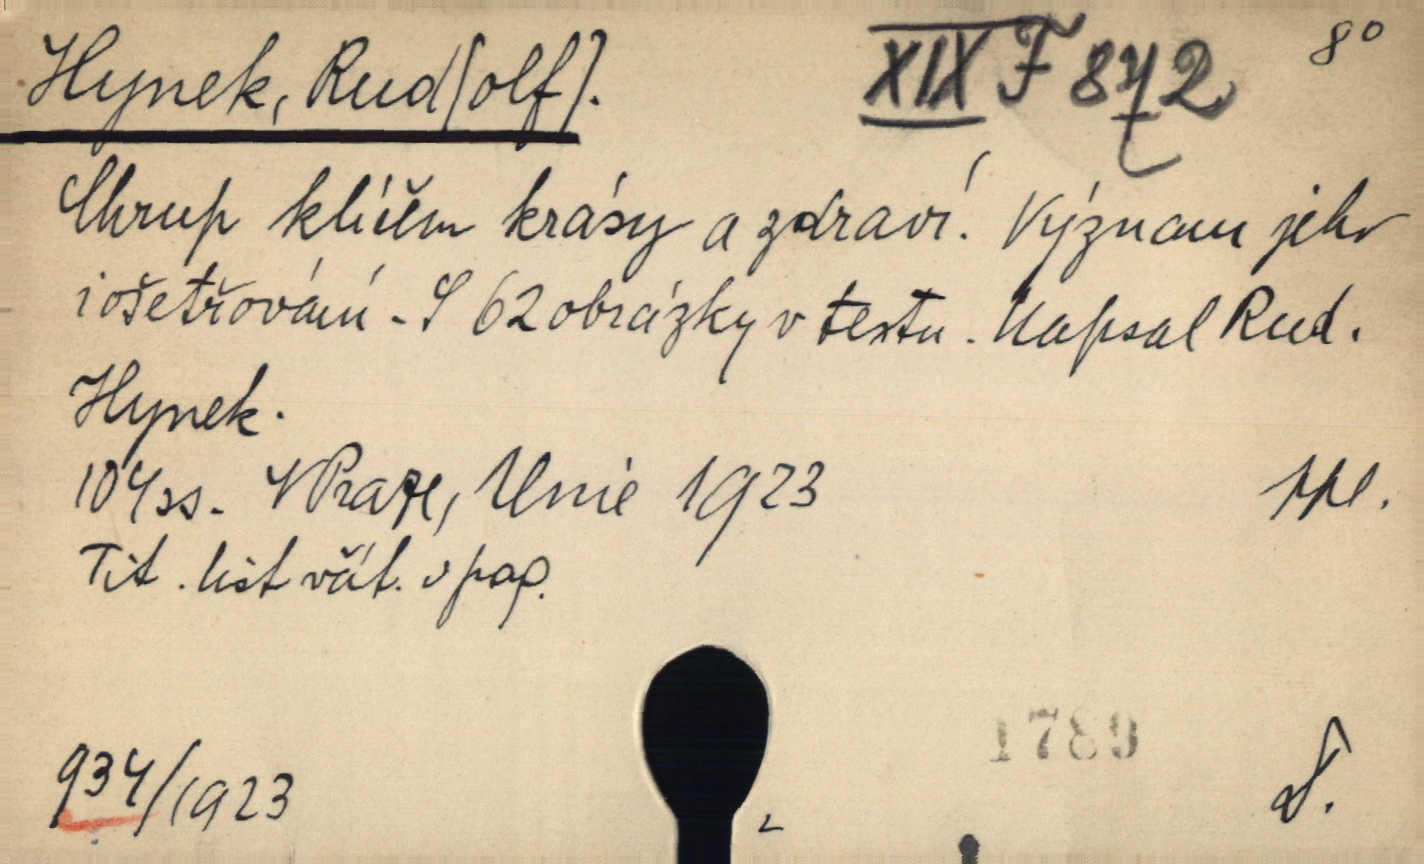 Hynek, Rud[olf]. XIX F 872 8°
Chrup klíčem krásy a zdraví. Význam jeho
i ošetřování. - S 62 obrázky v textu. Napsal Rud.
Hynek.
104 ss. V Praze, Unie 1923 ppl.
Tit. list včít. v pag.
1789
934/1923